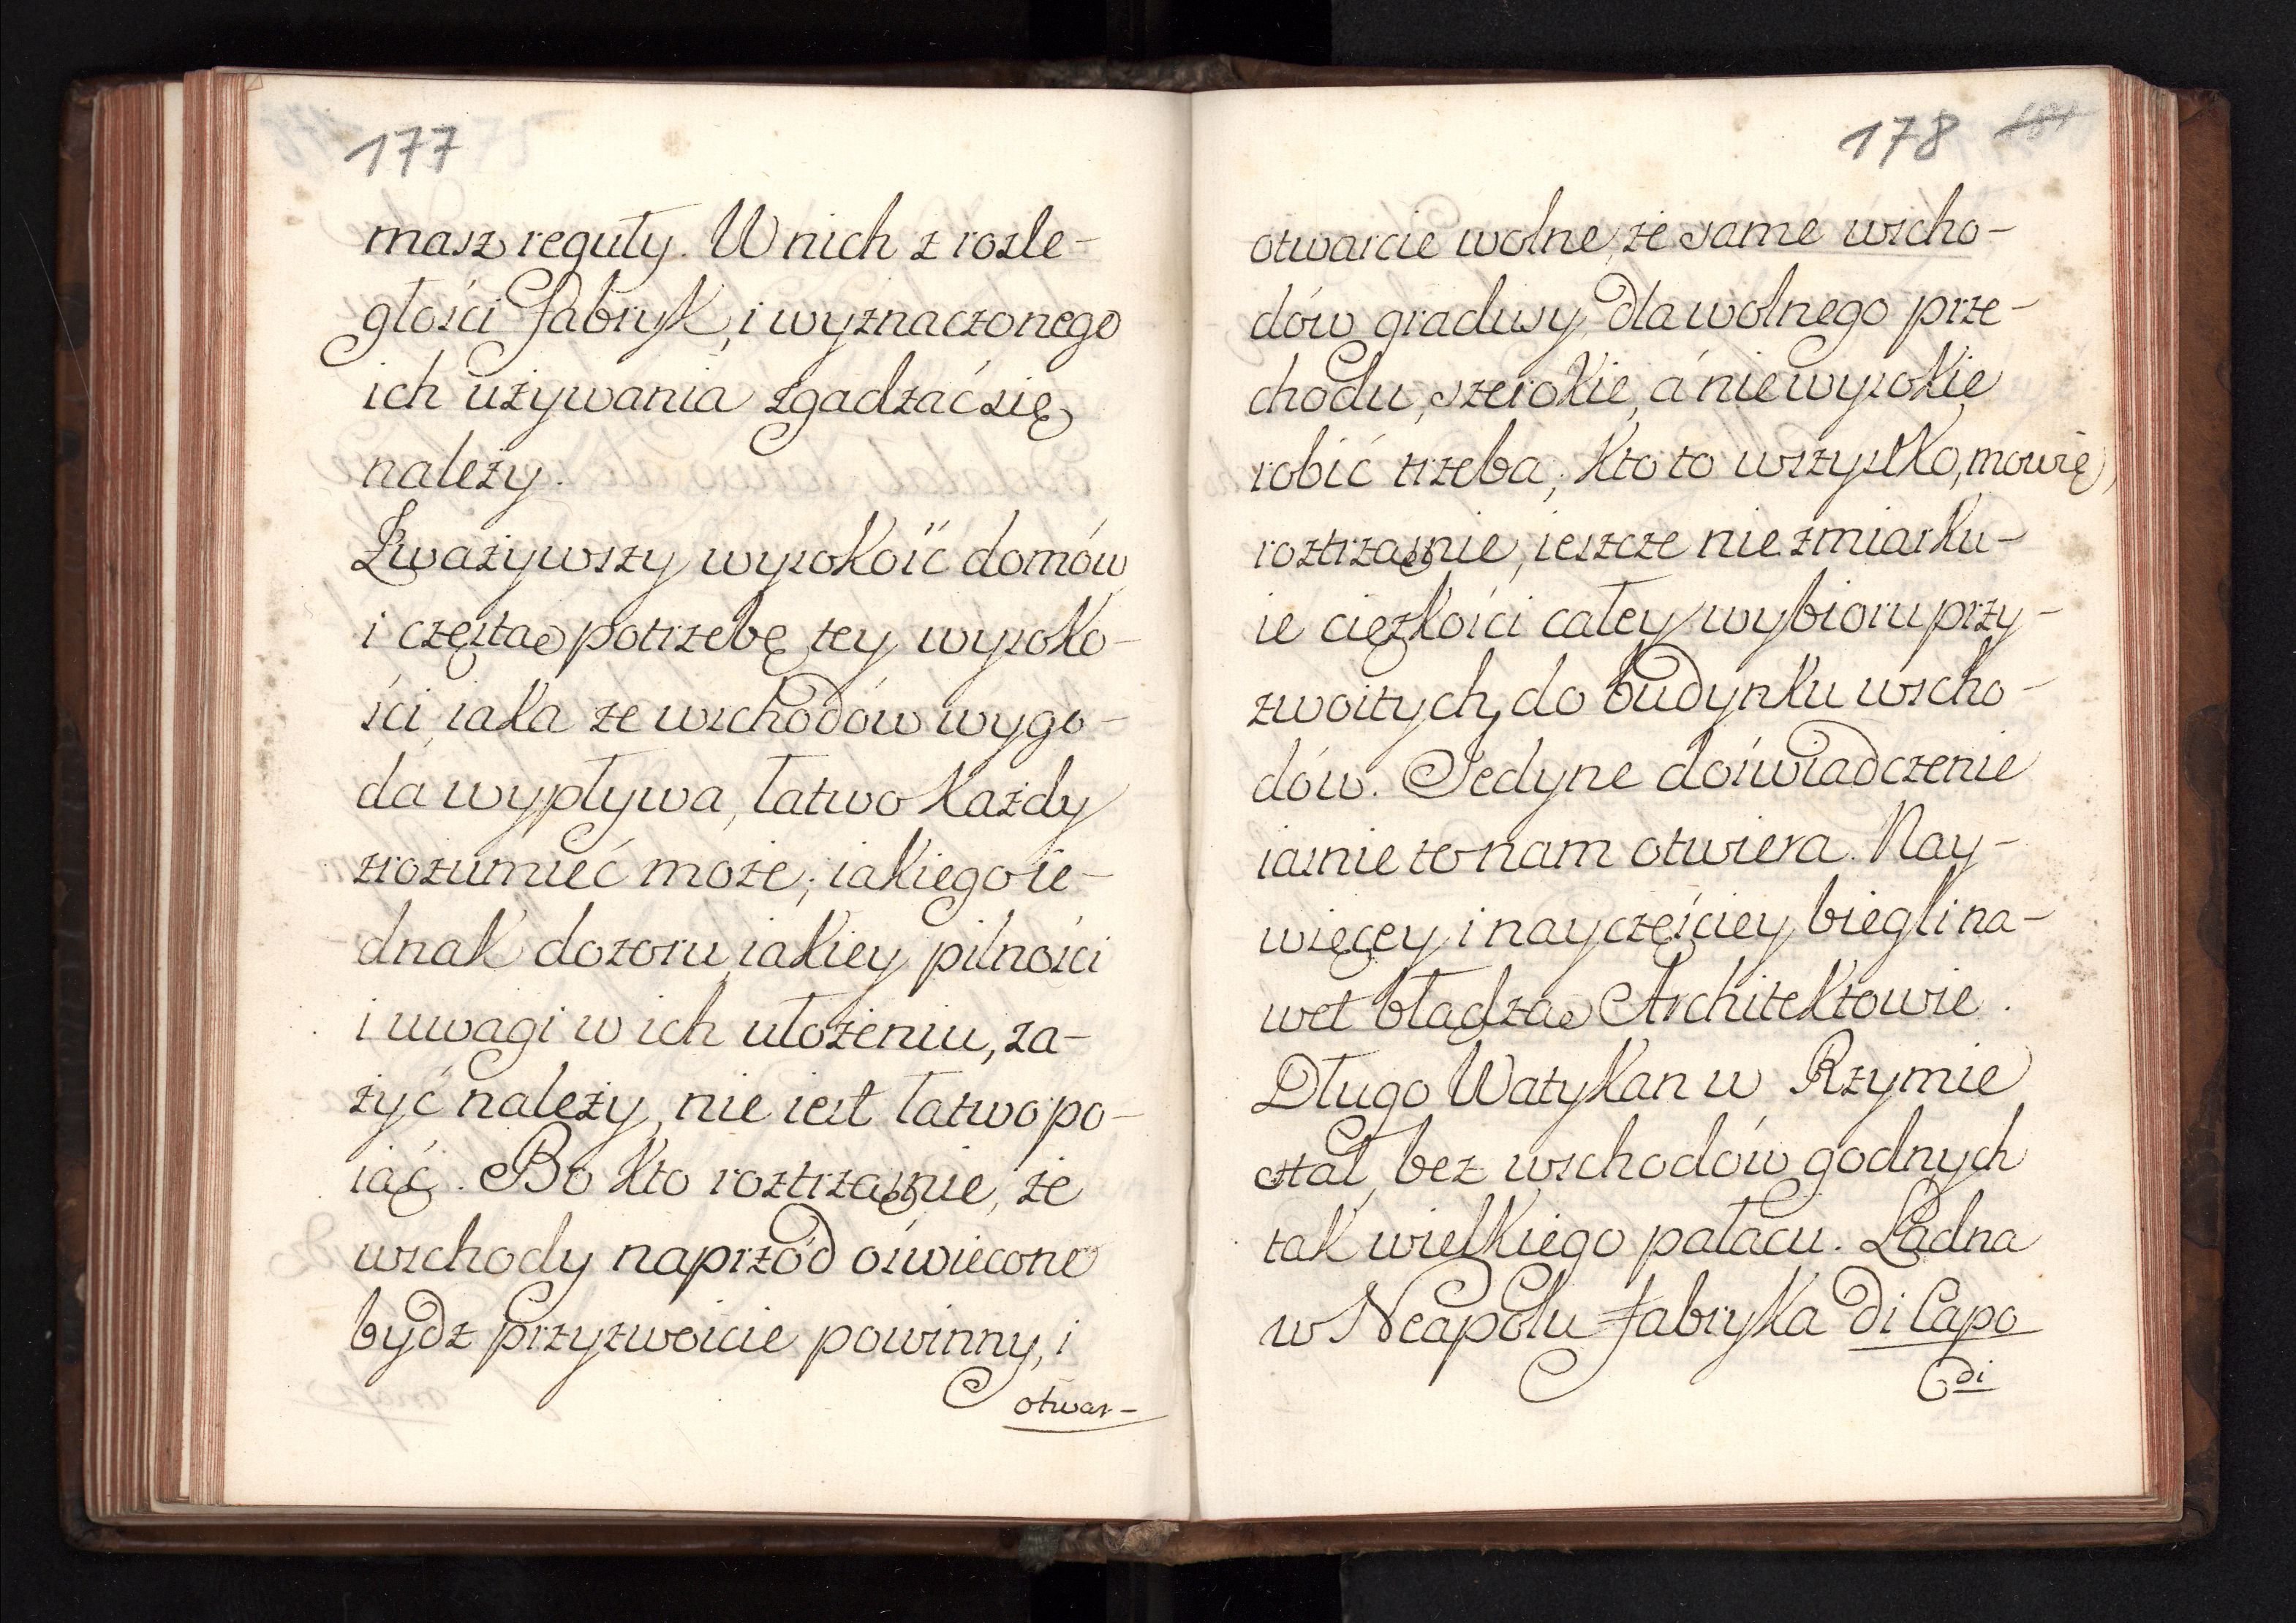 177
masz reguły. W nich z rozle-
głości Fabryk, i wyznaczonego
ich używania zgadzać się
należy.
Zważywszy wysokość domów
i częstą potrzebę tey wysoko-
ści, iaka ze wschodów wygo-
da wypływa, łatwo każdy
zrozumieć może; iakiego ie-
dnak dozoru, iakiey pilności
i uwagi w ich ułożeniu, za-
żyć należy, nie iest łatwo po-
iąć. Bo kto roztrząśnie, że
wschody naprzód oświecone
bydz przyzwoicie powinny, i
otwar-
178 181
otwarcie wolne, że same wscho-
dów gradusy, dla wolnego prze-
chodu, szerokie, á nie wysokie
robić trzeba; kto to wszystko, mowię,
roztrząśnie, ieszcze nie zmiarku-
ie ciężkości całey wybioru przy-
zwoitych do budynku wscho-
dów. Jedyne doświadczenie
iaśnie to nam otwiera. Nay-
więcey i nayczęściey biegli na-
wet błądzą Architektowie.
Długo Watykan w Rzymie
stał, bez wschodów godnych
tak wielkiego pałacu. Ładna
w Neapolu Fabryka di Capo
di